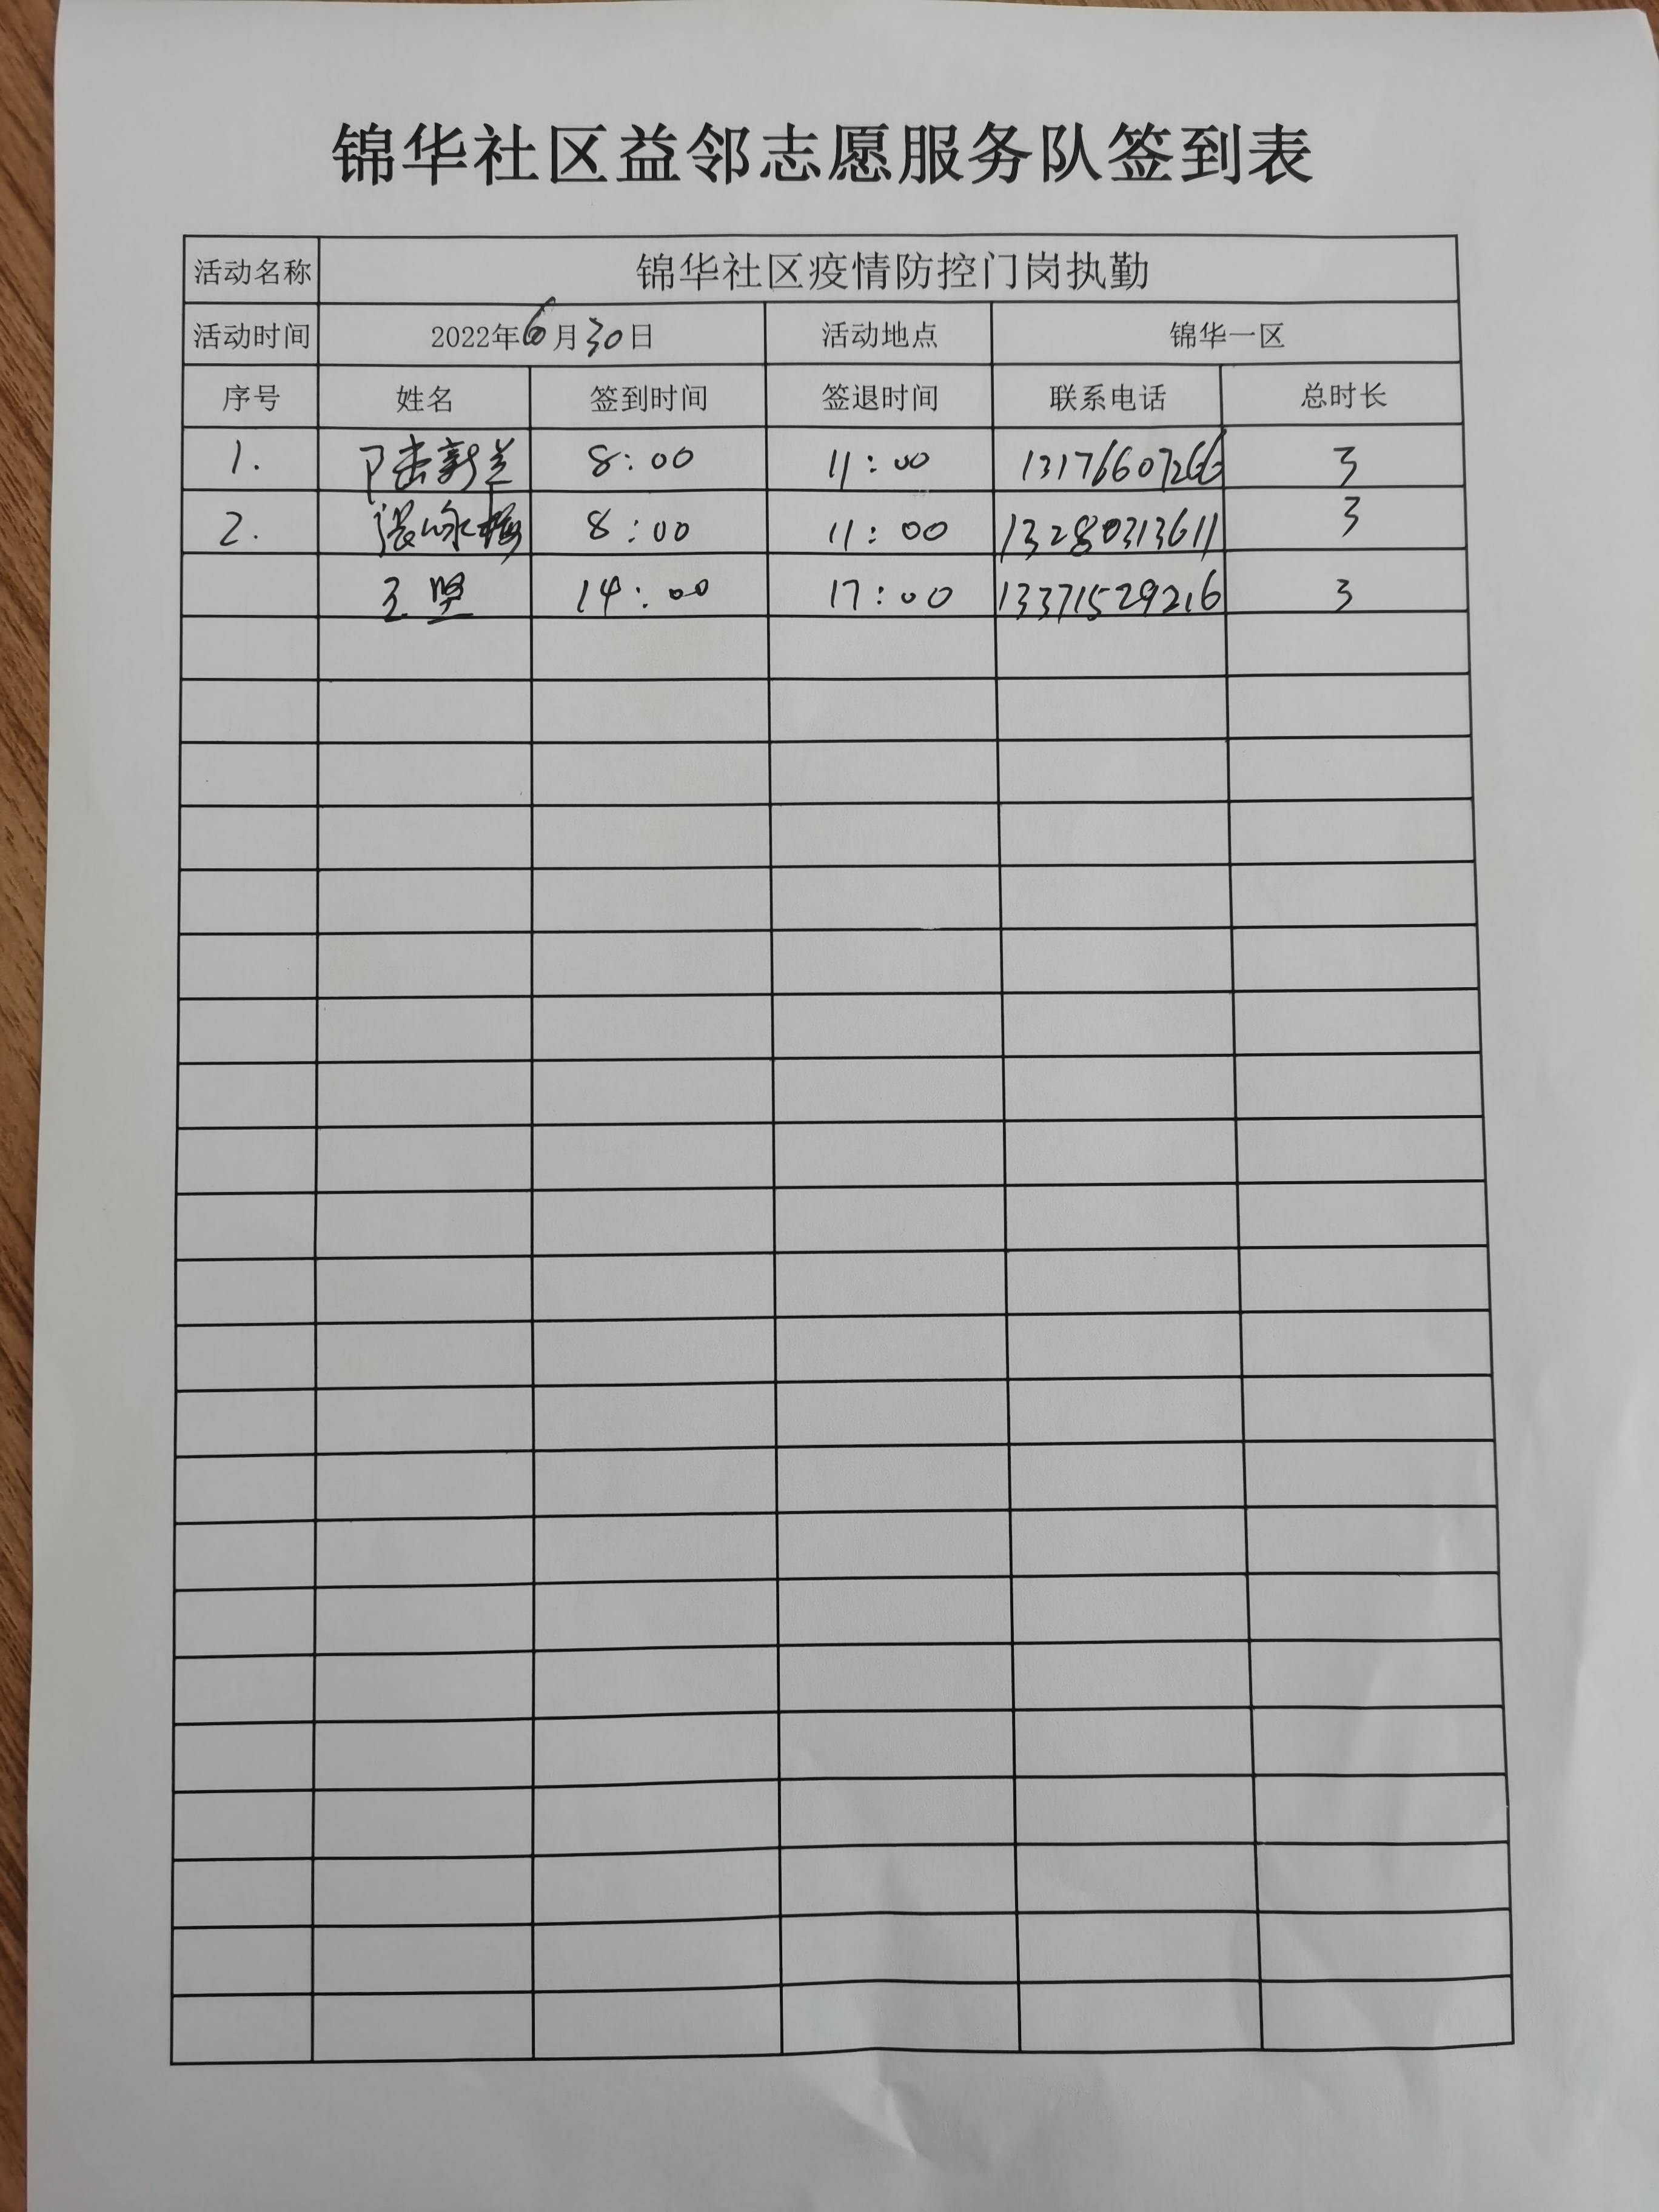 锦华社区益邻志愿服务队签到表
活动名称 锦华社区疫情防控门岗执勤
活动时间 2022年6月30日 活动地点 锦华一区
序号 姓名 签到时间 签退时间 联系电话 总时长
1. 陆新兰 8:00 11:00 13176607266 3
2. 张咏梅 8:00 11:00 13280313611 3
王坚 14:00 17:00 13371529216 3